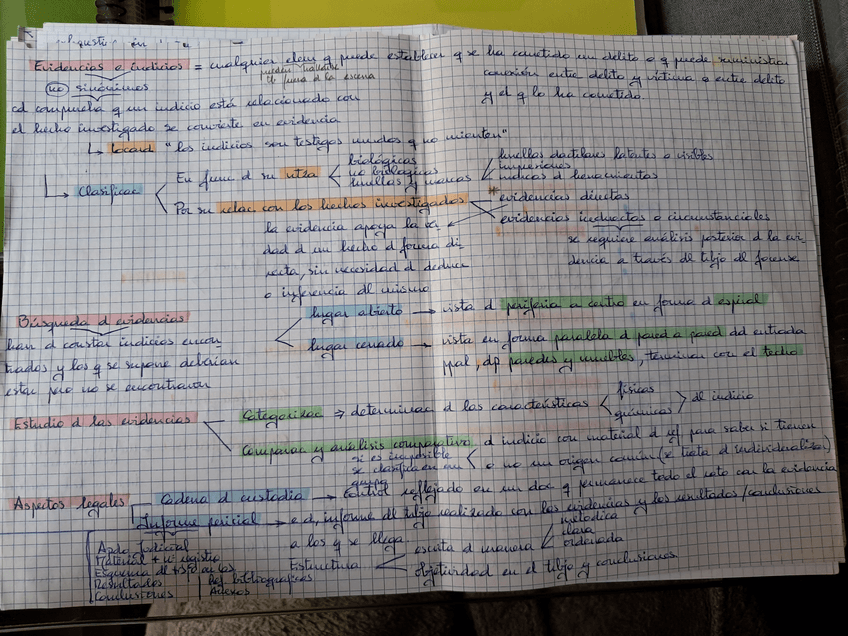 Evidencias e indicios = cualquier elem q puede establecer q se ha cometido un delito o q puede suministrar
pueden hallarse
fuera d la escena
conexión entre delito y víctima o entre delito
no sinónimos
y el q lo ha cometido.
cd comprueba q un indicio está relacionado con
el hecho investigado se convierte en evidencia
↳ Locard "los indicios son testigos mudos q no mienten"
↳ Clasificac
En func d su ntza
biológicas
no biológicas
huellas y marcas
huellas dactilares latentes o visibles
impresiones
indicios d herramientas
Por su relac con los hechos investigados
* evidencias directas
evidencias indirectas o circunstanciales
la evidencia apoya la ver
dad d un hecho d forma di
recta, sin necesidad d deducc
o inferencia del mismo
se requiere análisis posterior d la evi
dencia a través del tbjo del forense
Búsqueda d evidencias
han d constar indicios encon
trados y los q se supone deberían
estar pero no se encontraron
lugar abierto → vista d periferia a centro en forma d espiral
lugar cerrado → vista en forma paralela d pared a pared dd entrada
ppal, dp paredes y muebles, terminar con el techo
Estudio d las evidencias
Categorizac → determinac d las características
físicas
químicas
del indicio
Comparac y análisis comparativo d indicio con material d ref para saber si tienen
o no un origen común (se trata d individualizar)
si es imposible
se clasifica en un
grupo
Aspectos legales
Cadena d custodia → control reflejado en un doc q permanece todo el rato con la evidencia
Informe pericial → e d, informe del tbjo realizado con las evidencias y los resultados/conclusiones
a los q se llega.
escrita d manera
metódica
clara
ordenada
Estructura
objetividad en el tbjo y conclusiones.
Apdo Judicial
Material + nº registro
Resultados
Conclusiones
Ref bibliográficas
Anexos